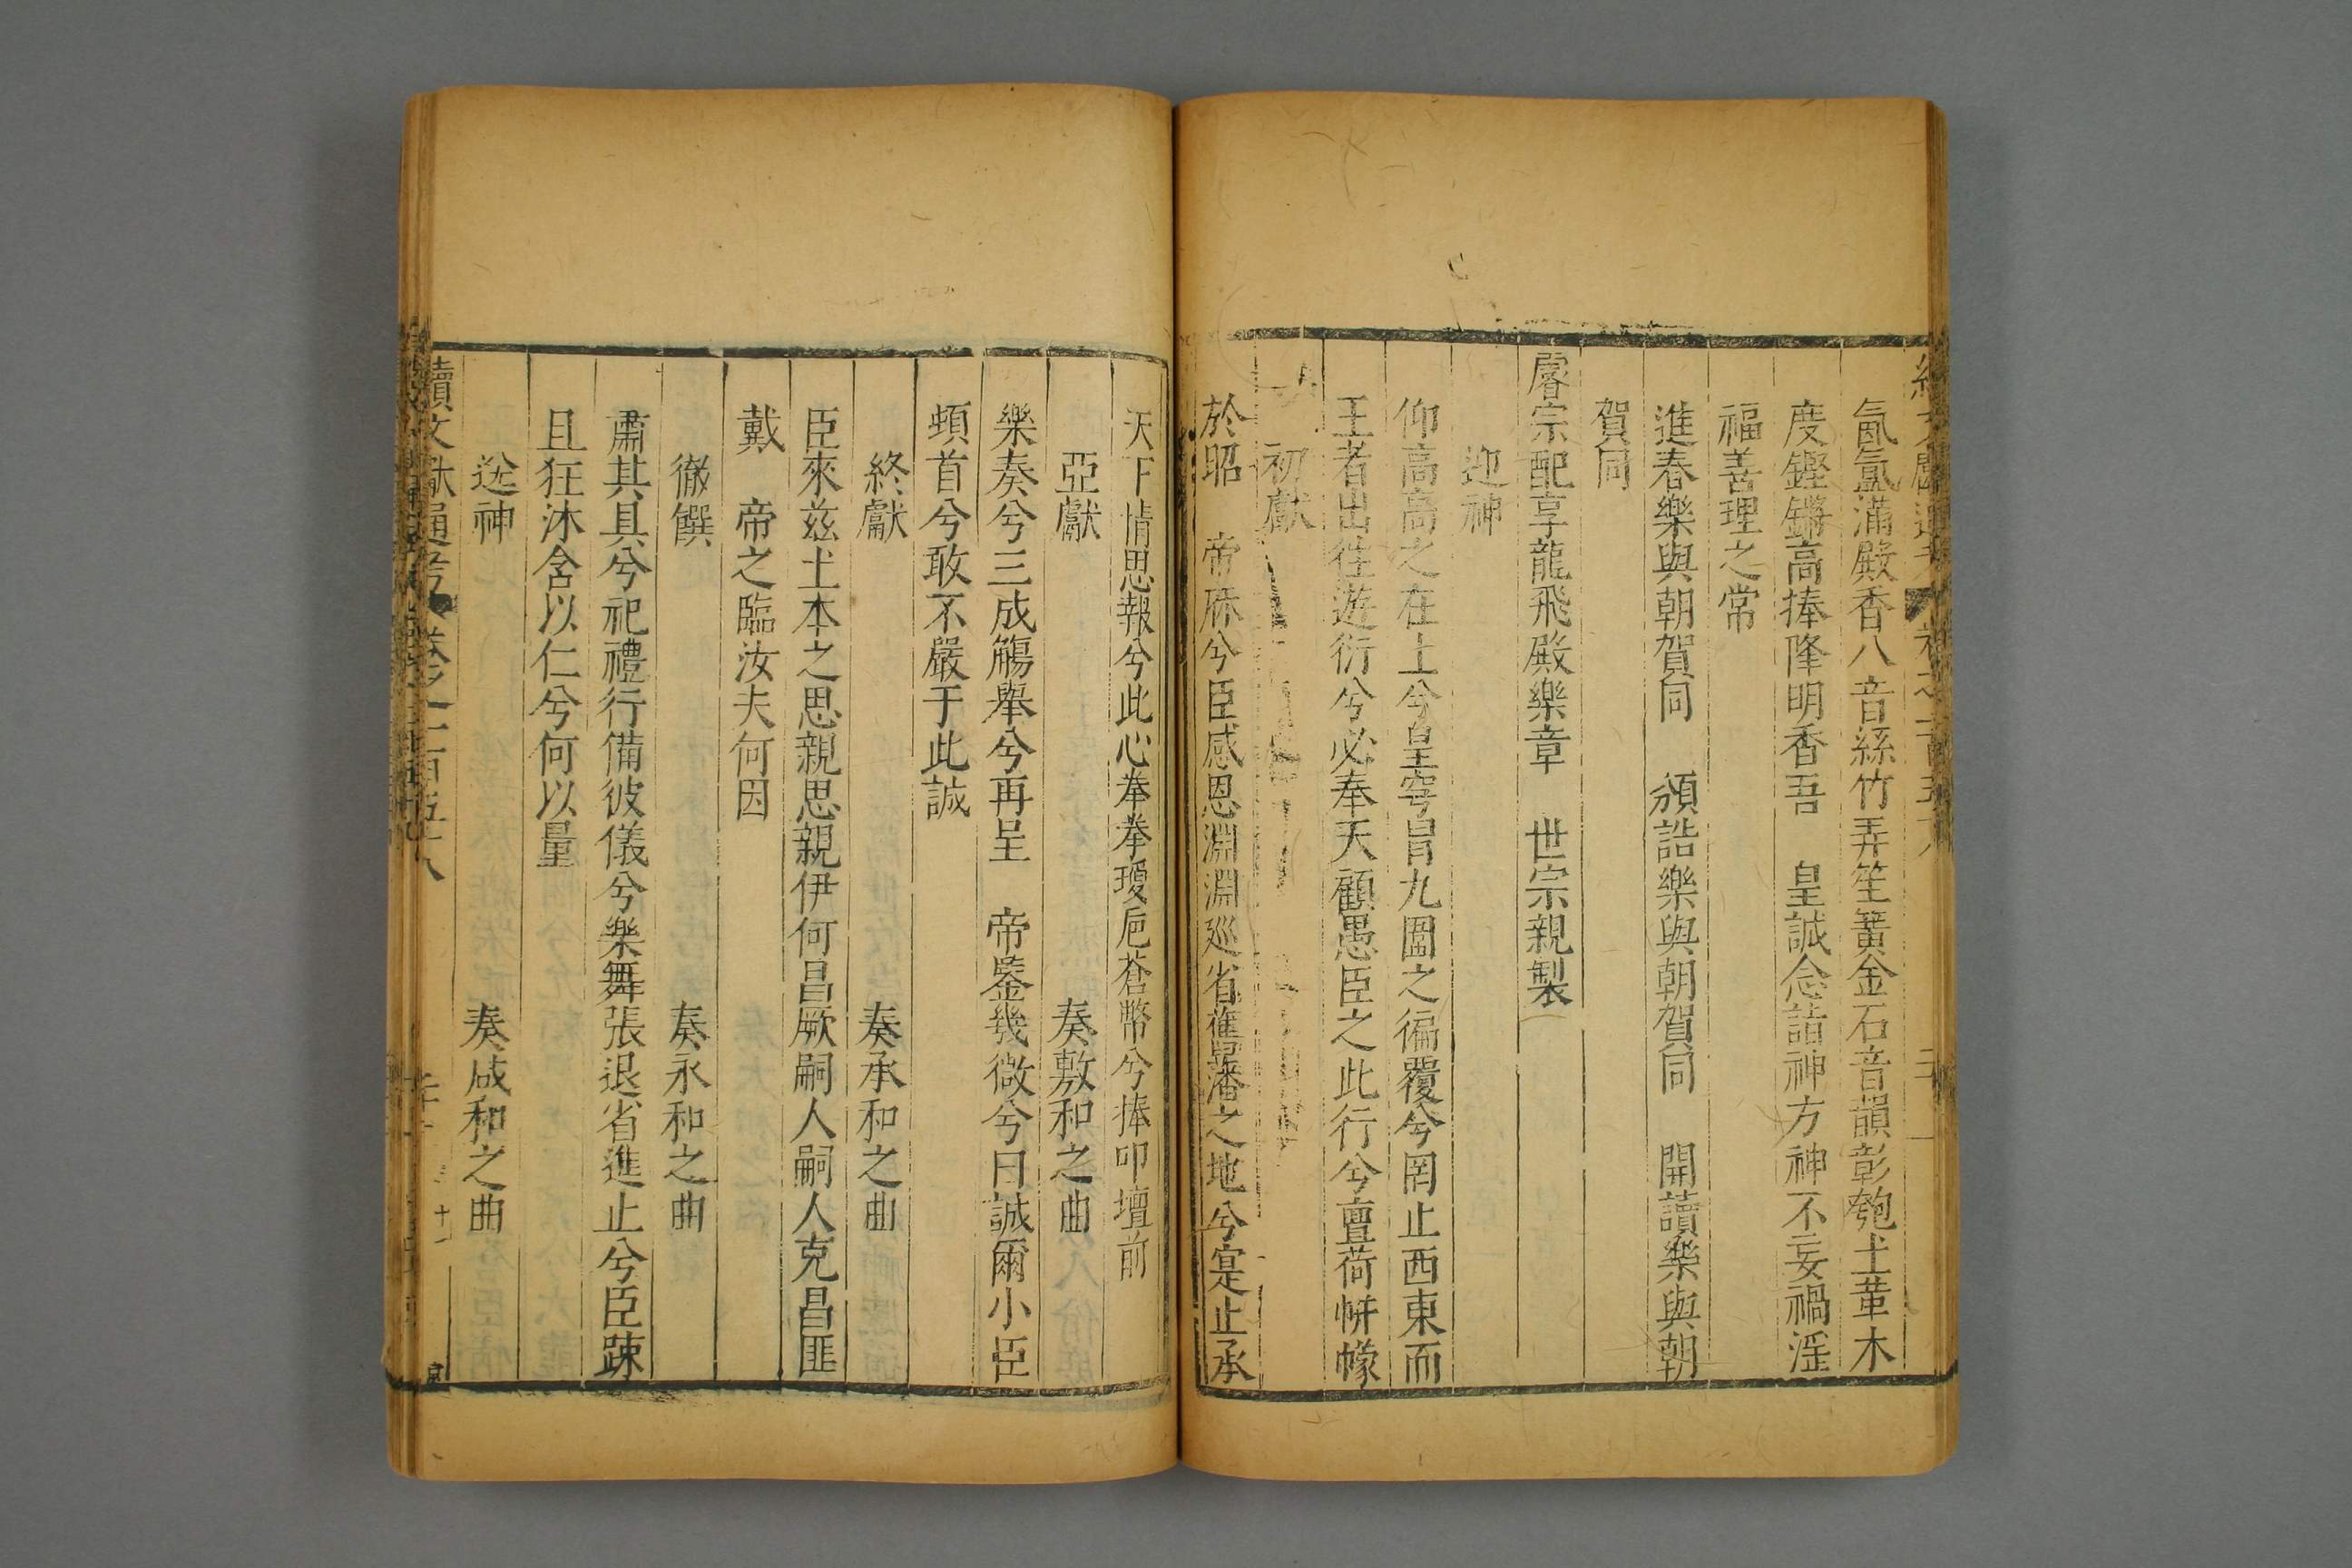 氤氳滿殿香八音絲竹弄笙簧金石音韻彰匏土革木
度鏗鏘高捧隆明香吾　皇誠念詣神方神不妄禍淫
福善理之常
進春樂與朝賀同　頒詔樂與朝賀同　開讀樂與朝
賀同
睿宗配享龍飛殿樂章　世宗親製
迎神
仰高高之在上兮皇穹冒九圍之徧覆兮罔止西東而
王者出往遊衍兮必奉天顧愚臣之此行兮亶荷帡幪
初獻
於昭　帝庥兮臣感恩淵淵巡省舊藩之地兮寔止承
天下情思報兮此心拳拳瓊巵蒼幣兮捧叩壇前
亞獻　奏敷和之曲
樂奏兮三成觴舉兮再呈　帝鑒幾微兮曰誠爾小臣
頓首兮敢不嚴于此誠
終獻　奏承和之曲
臣來兹土本之思親思親伊何昌厥嗣人嗣人克昌匪
戴　帝之臨汝夫何因
徹饌　奏永和之曲
肅其具兮祀禮行備彼儀兮樂舞張退省進止兮臣疎
且狂沐含以仁兮何以量
送神　奏咸和之曲
續文獻通考　卷之一百五十八